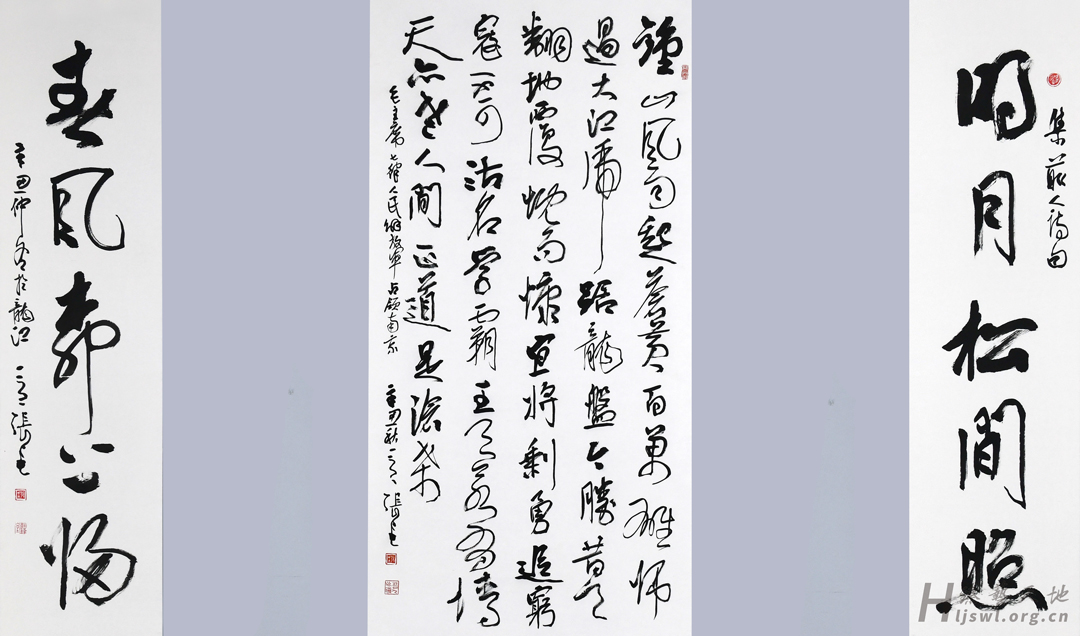 明月松間照
鐘山風雨起蒼黄百萬雄師
過大江虎踞龍盤今勝昔天
翻地覆慨而慷宜將剩勇追窮
寇不可沽名學霸王天若有情
天亦老人間正道是滄桑
毛主席七律人民解放軍占領南京 辛丑秋
春風柳上歸
辛丑仲 於龍江
ljswl.org.cn